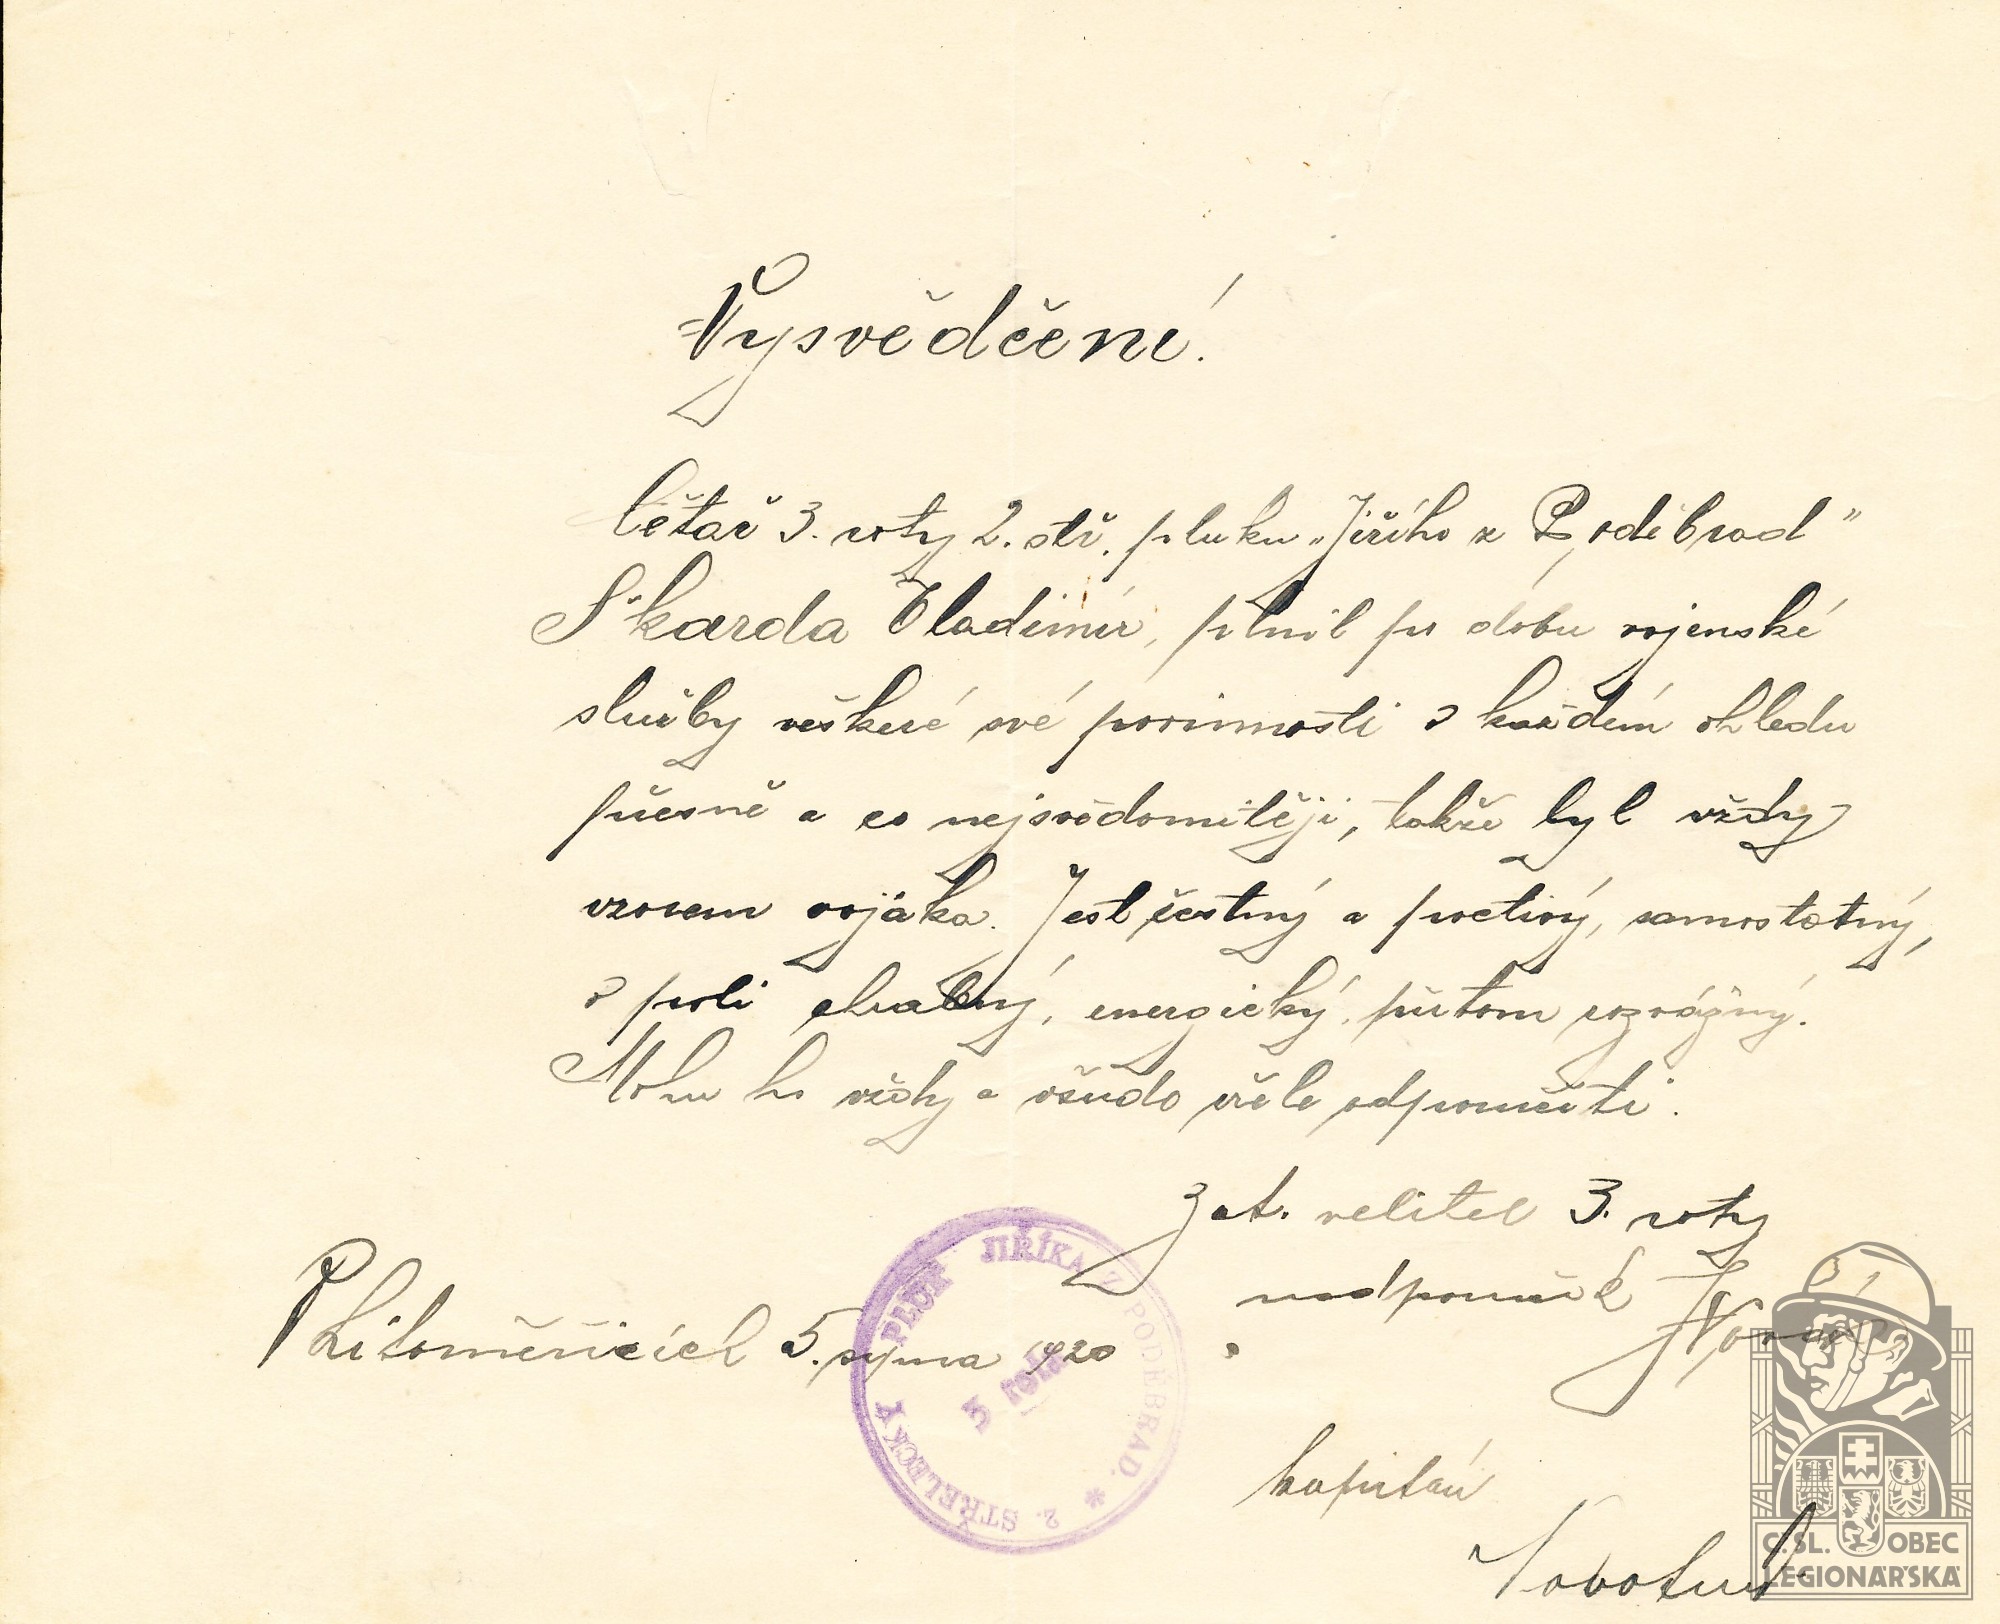 Vysvědčení.
Četař 3. roty 2. stř. pluku „Jiřího z Poděbrad"
Škarda Vladimír, plnil po dobu vojenské
služby veškeré své povinnosti v každém ohledu
přesně a co nejsvědomitěji, takže byl vždy
vzorem vojáka. Jest čestný a poctivý, samostatný,
v poli chrabrý, energický, přitom rozvážný.
Mohu ho vždy a všude vřele odporučiti.
Zat. velitel 3. roty
nadporučík
V Litoměřicích 5. srpna 1920
kapitán
2. STŘELECKÝ PLUK JIŘÍKA Z PODĚBRAD. *
3 rota
Č.SL. OBEC
LEGIONÁŘSKÁ